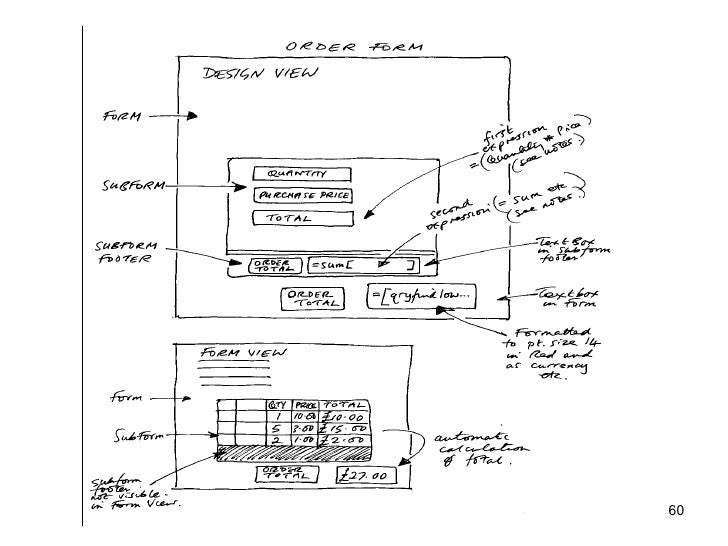 ORDER FORM
DESIGN VIEW
FORM
first
expression
=(Quantity * price)
(see notes)
QUANTITY
SUBFORM
PURCHASE PRICE
TOTAL
second
expression (= sum etc)
(see notes)
SUBFORM
FOOTER
ORDER
TOTAL
=sum[ ]
Text Box
in subform
footer
ORDER
TOTAL
=[qryfindlow...
Textbox
in form
Formatted
to pt. size 14
in Red and
as currency
etc.
FORM VIEW
Form
QTY PRICE TOTAL
1 10.00 £10.00
5 3.00 £15.00
2 1.00 £2.00
Subform
automatic
calculation
of total.
ORDER
TOTAL
£27.00
Subform
footer
not visible
in Form View.
60